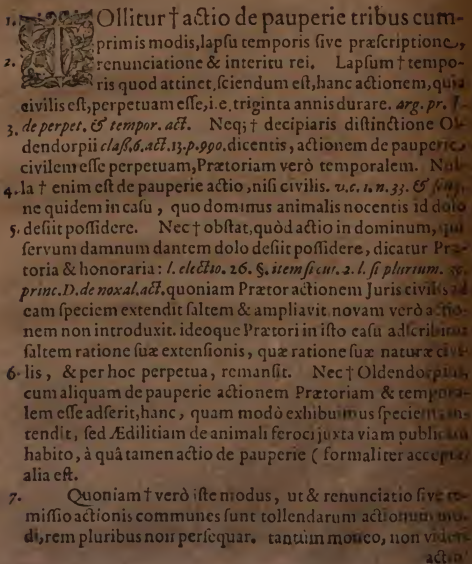 1. TOllitur † actio de pauperie tribus cum-
primis modis, lapsu temporis sive præscriptione,
2. renunciatione & interitu rei. Lapsum † tempo-
ris quod attinet, sciendum est, hanc actionem, quia
civilis est, perpetuam esse, i.e. triginta annis durare. arg. pr. I.
3. de perpet. & tempor. act. Neq; † decipiaris distinctione Ol-
dendorpii claß. 6. act. 13. p. 990. dicentis, actionem de pauperie
civilem esse perpetuam, Prætoriam verò temporalem. Nul-
4. la † enim est de pauperie actio, nisi civilis. v. c. 1. n. 33. &
ne quidem in casu, quo dominus animalis nocentis id dolo
5. desiit possidere. Nec † obstat, quòd actio in dominum, qui
servum damnum dantem dolo desiit possidere, dicatur Præ-
toria & honoraria: l. electio. 26. §. item si cui. 2. l. si plurium.
princ. D. de noxal. act. quoniam Prætor actionem Juris civilis ad
eam speciem extendit saltem & ampliavit. novam verò actio-
nem non introduxit. ideoque Prætori in isto casu adscribitur
saltem ratione suæ extensionis, quæ ratione suæ naturæ civi-
6. lis, & per hoc perpetua, remansit. Nec † Oldendorpius,
cum aliquam de pauperie actionem Prætoriam & tempora-
lem esse adserit, hanc, quam modò exhibuimus speciem in-
tendit, sed Ædilitiam de animali feroci juxta viam publicam
habito, à quâ tamen actio de pauperie ( formaliter accepta)
alia est.
7. Quoniam † verò iste modus, ut & renunciatio sive re-
missio actionis communes sunt tollendarum actionum mo-
di, rem pluribus non persequar. tantùm moneo, non videri
actio